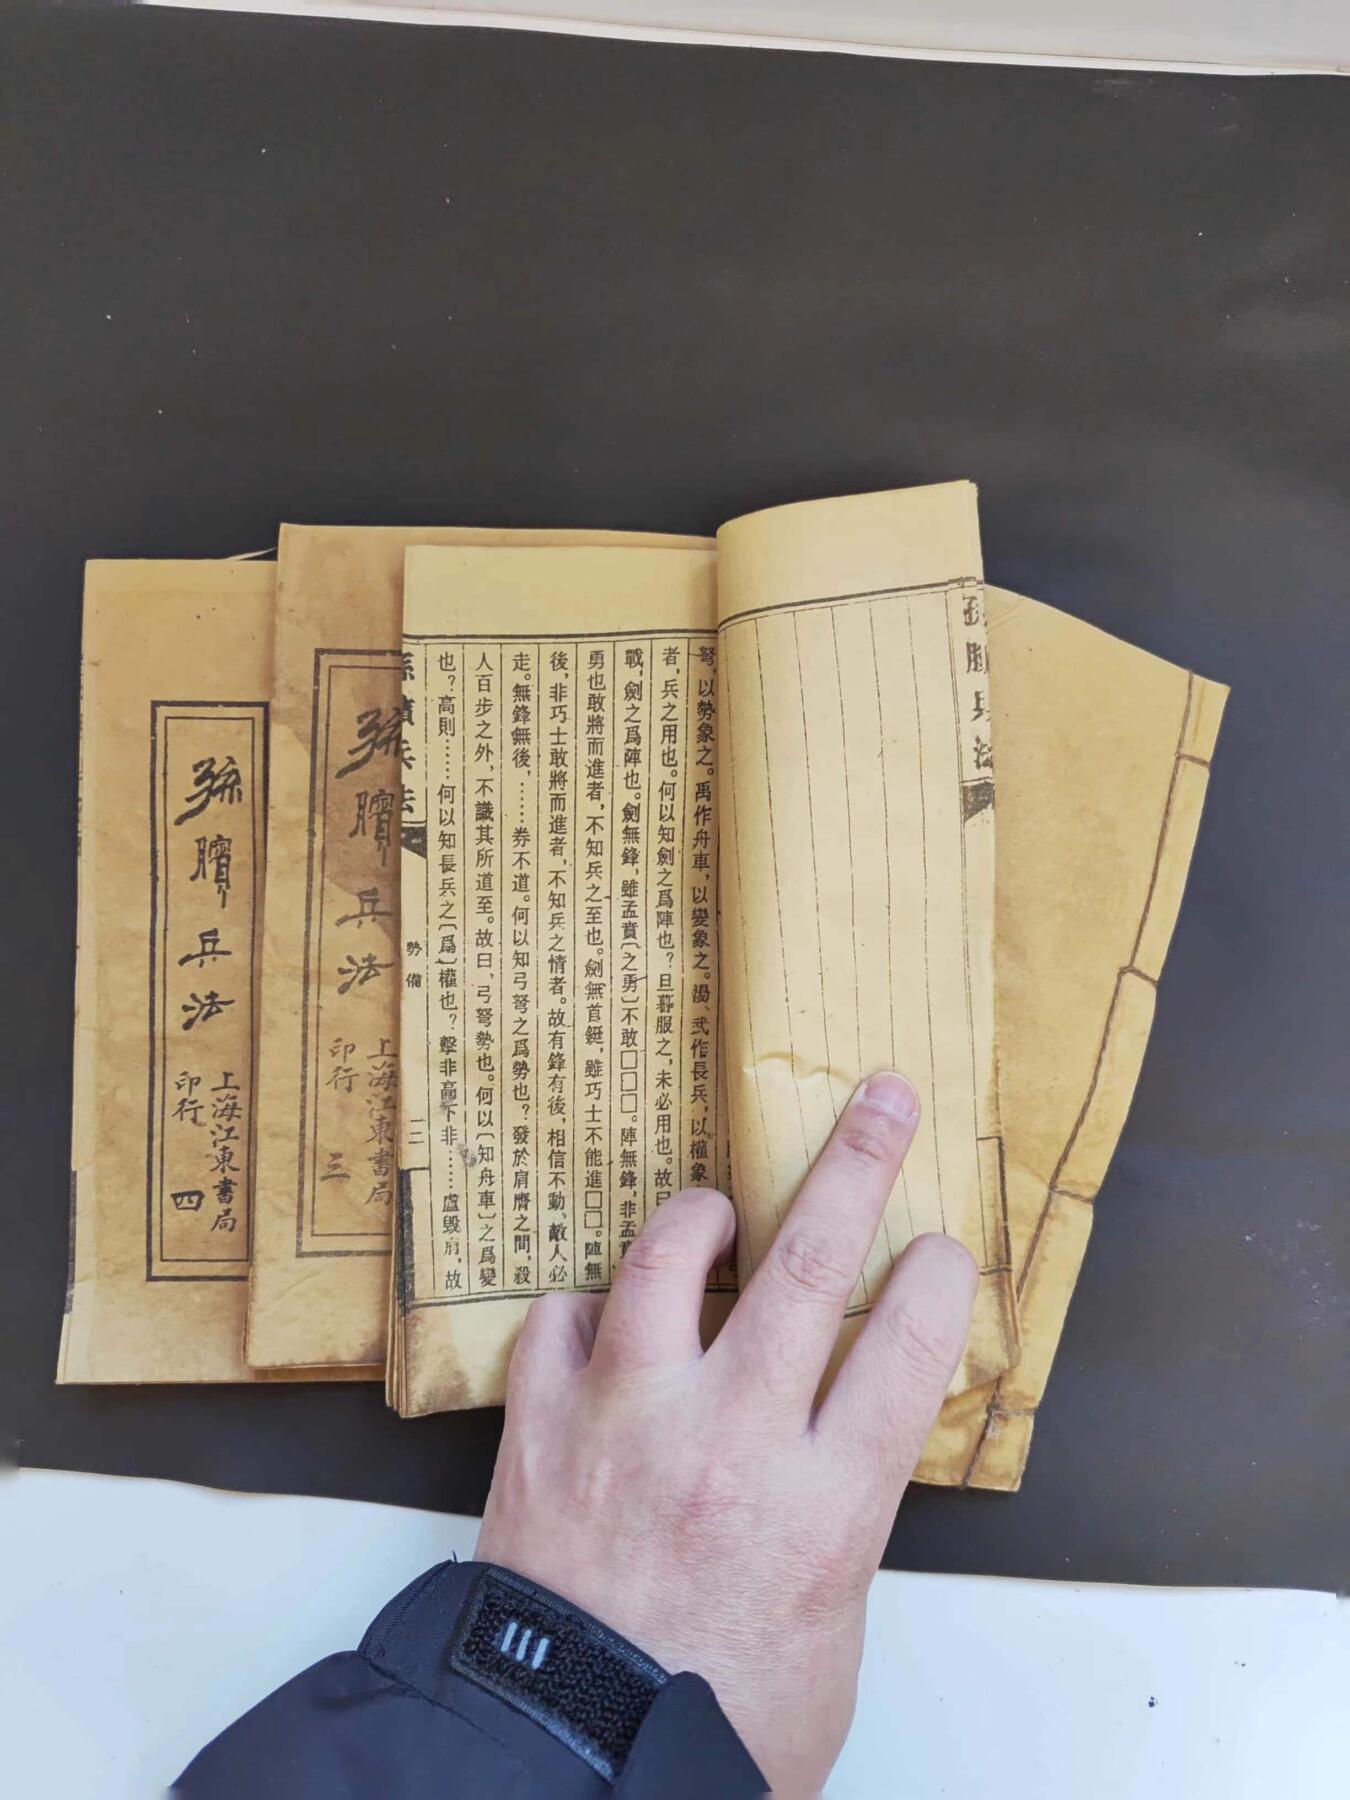 孫臏兵法
弩，以勢象之。禹作舟車，以變象之。湯、武作長兵，以權象
者，兵之用也。何以知劍之爲陣也？旦暮服之，未必用也。故曰
戰，劍之爲陣也。劍無鋒，雖孟賁〔之勇〕不敢□□□。陣無鋒，非孟賁
勇也敢將而進者，不知兵之至也。劍無首鋌，雖巧士不能進□□。陣無
後，非巧士敢將而進者，不知兵之情者。故有鋒有後，相信不動，敵人必
走。無鋒無後，……券不道。何以知弓弩之爲勢也？發於肩膺之間，殺
人百步之外，不識其所道至。故曰，弓弩勢也。何以〔知舟車〕之爲變
也？高則……何以知長兵之〔爲〕權也？擊非高下非……盧毀肩，故
孫臏兵法
勢備
二
孫臏兵法
上海江東書局
印行
三
孫臏兵法
上海江東書局
印行
四